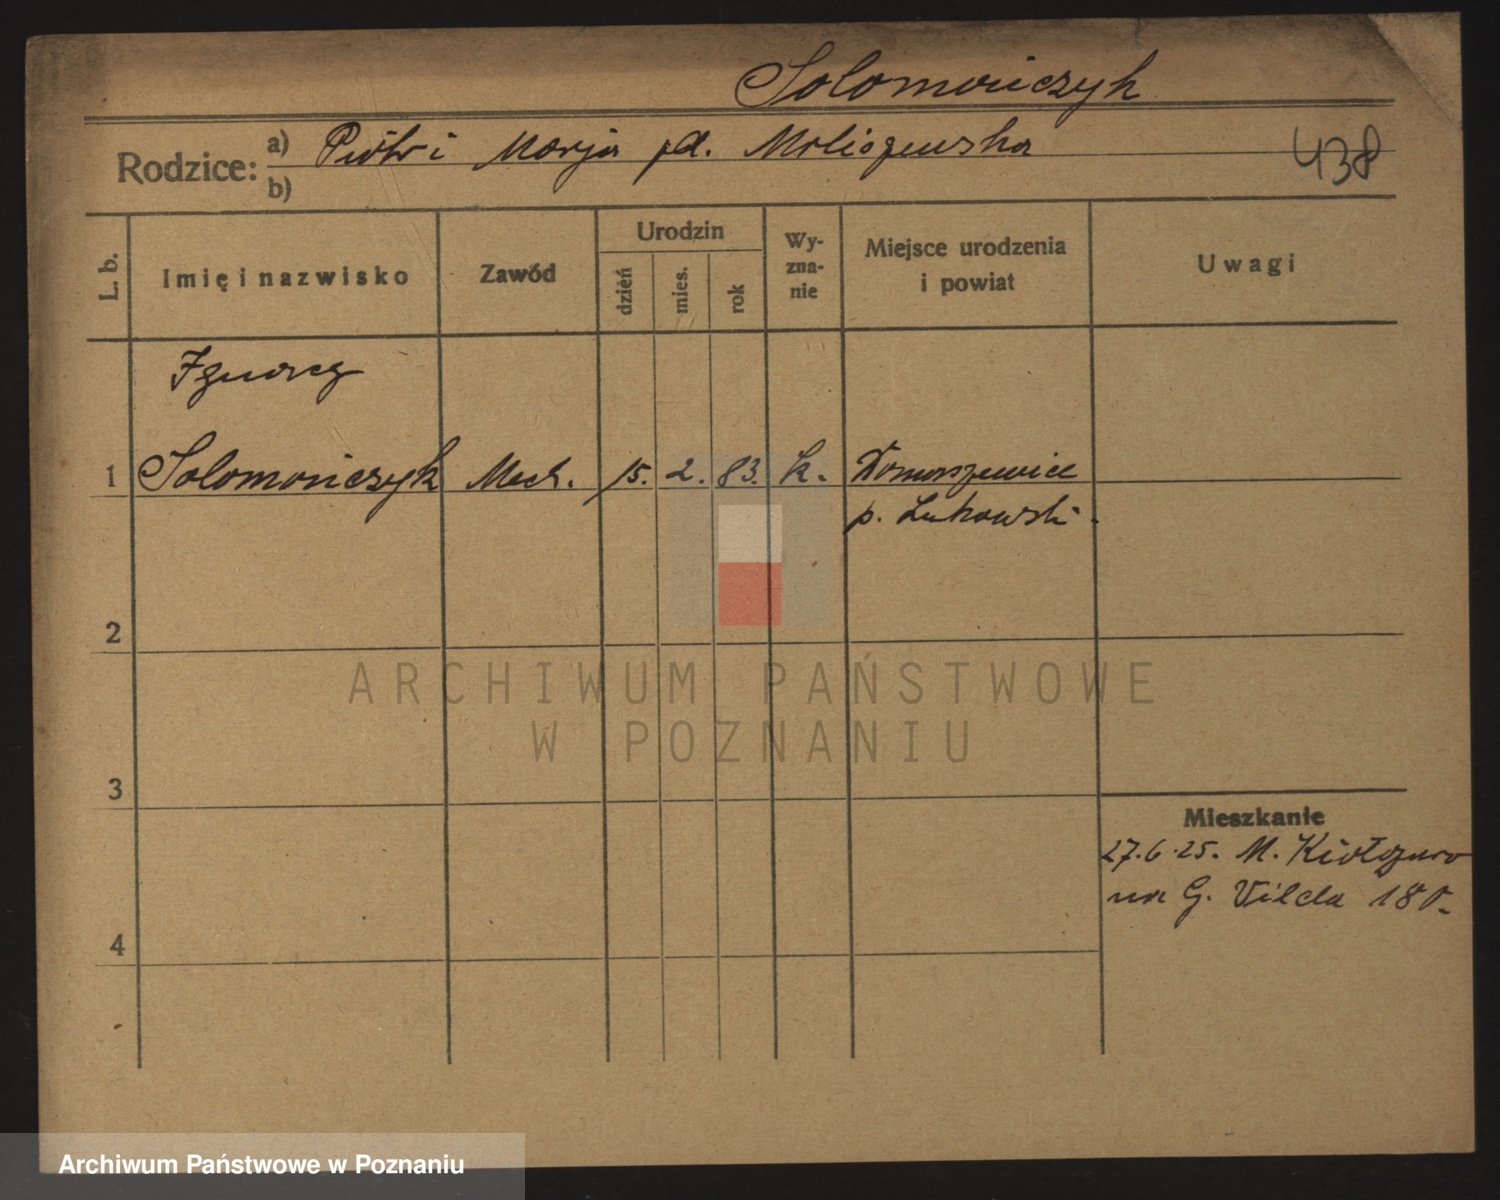 Solomończyk
Rodzice: a) Piotr i Marja pd. Maliszewska
b)
438
L. b.
Imię i nazwisko
Zawód
Urodzin
dzień
mies.
rok
Wy-
zna-
nie
Miejsce urodzenia
i powiat
Uwagi
Ignacy
1 Solomończyk Mech. 15. 2. 83. k. Domaszewice
p. Łukowski.
2
ARCHIWUM PAŃSTWOWE
W POZNANIU
3
Mieszkanie
27.6.25. M.
na G. Vilda 180.
4
Archiwum Państwowe w Poznaniu